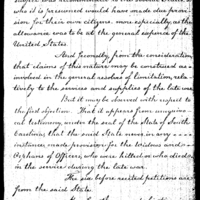 who it is presumed would have made due provi-
sion for their own citizens, more especially, as the
allowance was to be at the general expence of the
United States.
And Secondly, from the consideration
that claims of this nature may be construed as
involved in the general resolves of limitation, rela-
tively to the services and supplies of the late war.
But it may be observed with respect to
the first objection. That it appears from unques-
tionable testimony, under the seal of the State of South
Carolina, that the said State never, in any
instance, made provision for the widows and
Orphans of Officers, who were killed or who died
in the service during the late war.
The six before recited petitions are
from the said State.